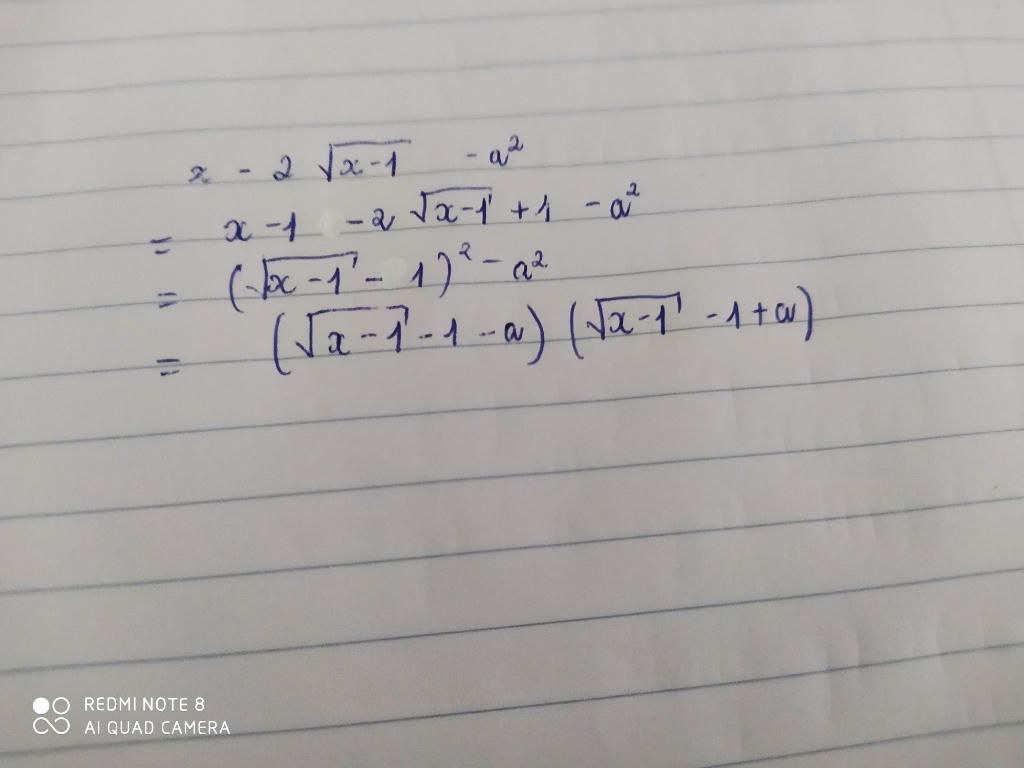 x - 2 √(x-1) - a²
= x - 1 - 2 √(x-1) + 1 - a²
= (√(x-1) - 1)² - a²
= (√(x-1) - 1 - a) (√(x-1) - 1 + a)
REDMI NOTE 8
AI QUAD CAMERA